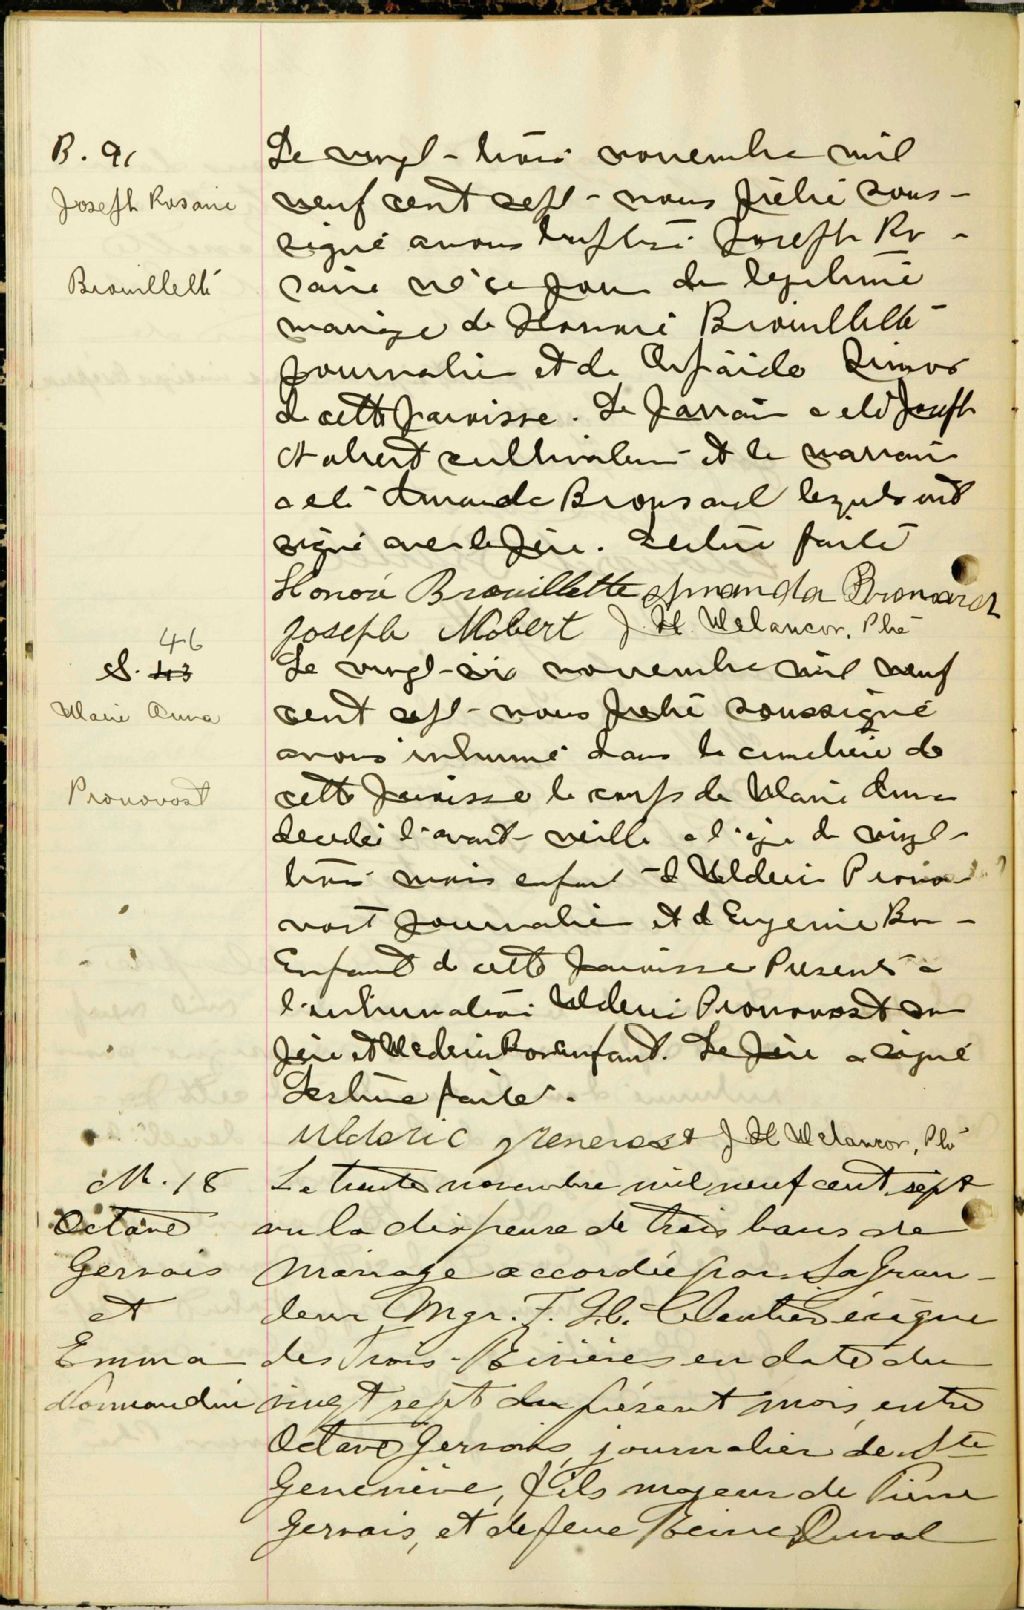 B. 91
Joseph Rosaire
Brouillette
Le vingt-trois novembre mil
neuf cent sept - nous prêtre sous-
signé avons baptisé Joseph Ro-
saire né ce jour du légitime
mariage de Honoré Brouillette
journalier et de
de cette paroisse. Le parrain a été Joseph
cultivateur et la marraine
a été Amanda Bronsard lesquels ont
signé avec le père. Lecture faite
Honoré Brouillette Amanda Bronsard
Joseph J. H. Melancon, Ptre
46
S. 43
Marie Anna
Pronovost
Le vingt-six novembre mil neuf
cent sept - nous prêtre soussigné
avons inhumé dans le cimetière de
cette paroisse le corps de Marie Anna
décédée l'avant-veille à l'âge de vingt-
trois mois enfant d Uldéric Prono-
vost journalier et d Eugénie Bon-
Enfant de cette paroisse Présents à
l'inhumation Uldéric Pronovost son
père et Bonenfant. Le père a signé
Lecture faite.
Ulderic Prenevost J H Melancon, Ptr
M. 18
Octave
Gervais
et
Emma
Normandin
Le trente novembre mil neuf cent sept
vu la dispense de trois bans de
mariage accordée par Sa Gran-
deur Mgr. F. X. Cloutier évêque
des Trois-Rivières en date du
vingt sept du présent mois, entre
Octave Gervais, journalier de Ste
Geneviève, fils majeur de Pierre
Gervais, et de feue Reine Duval